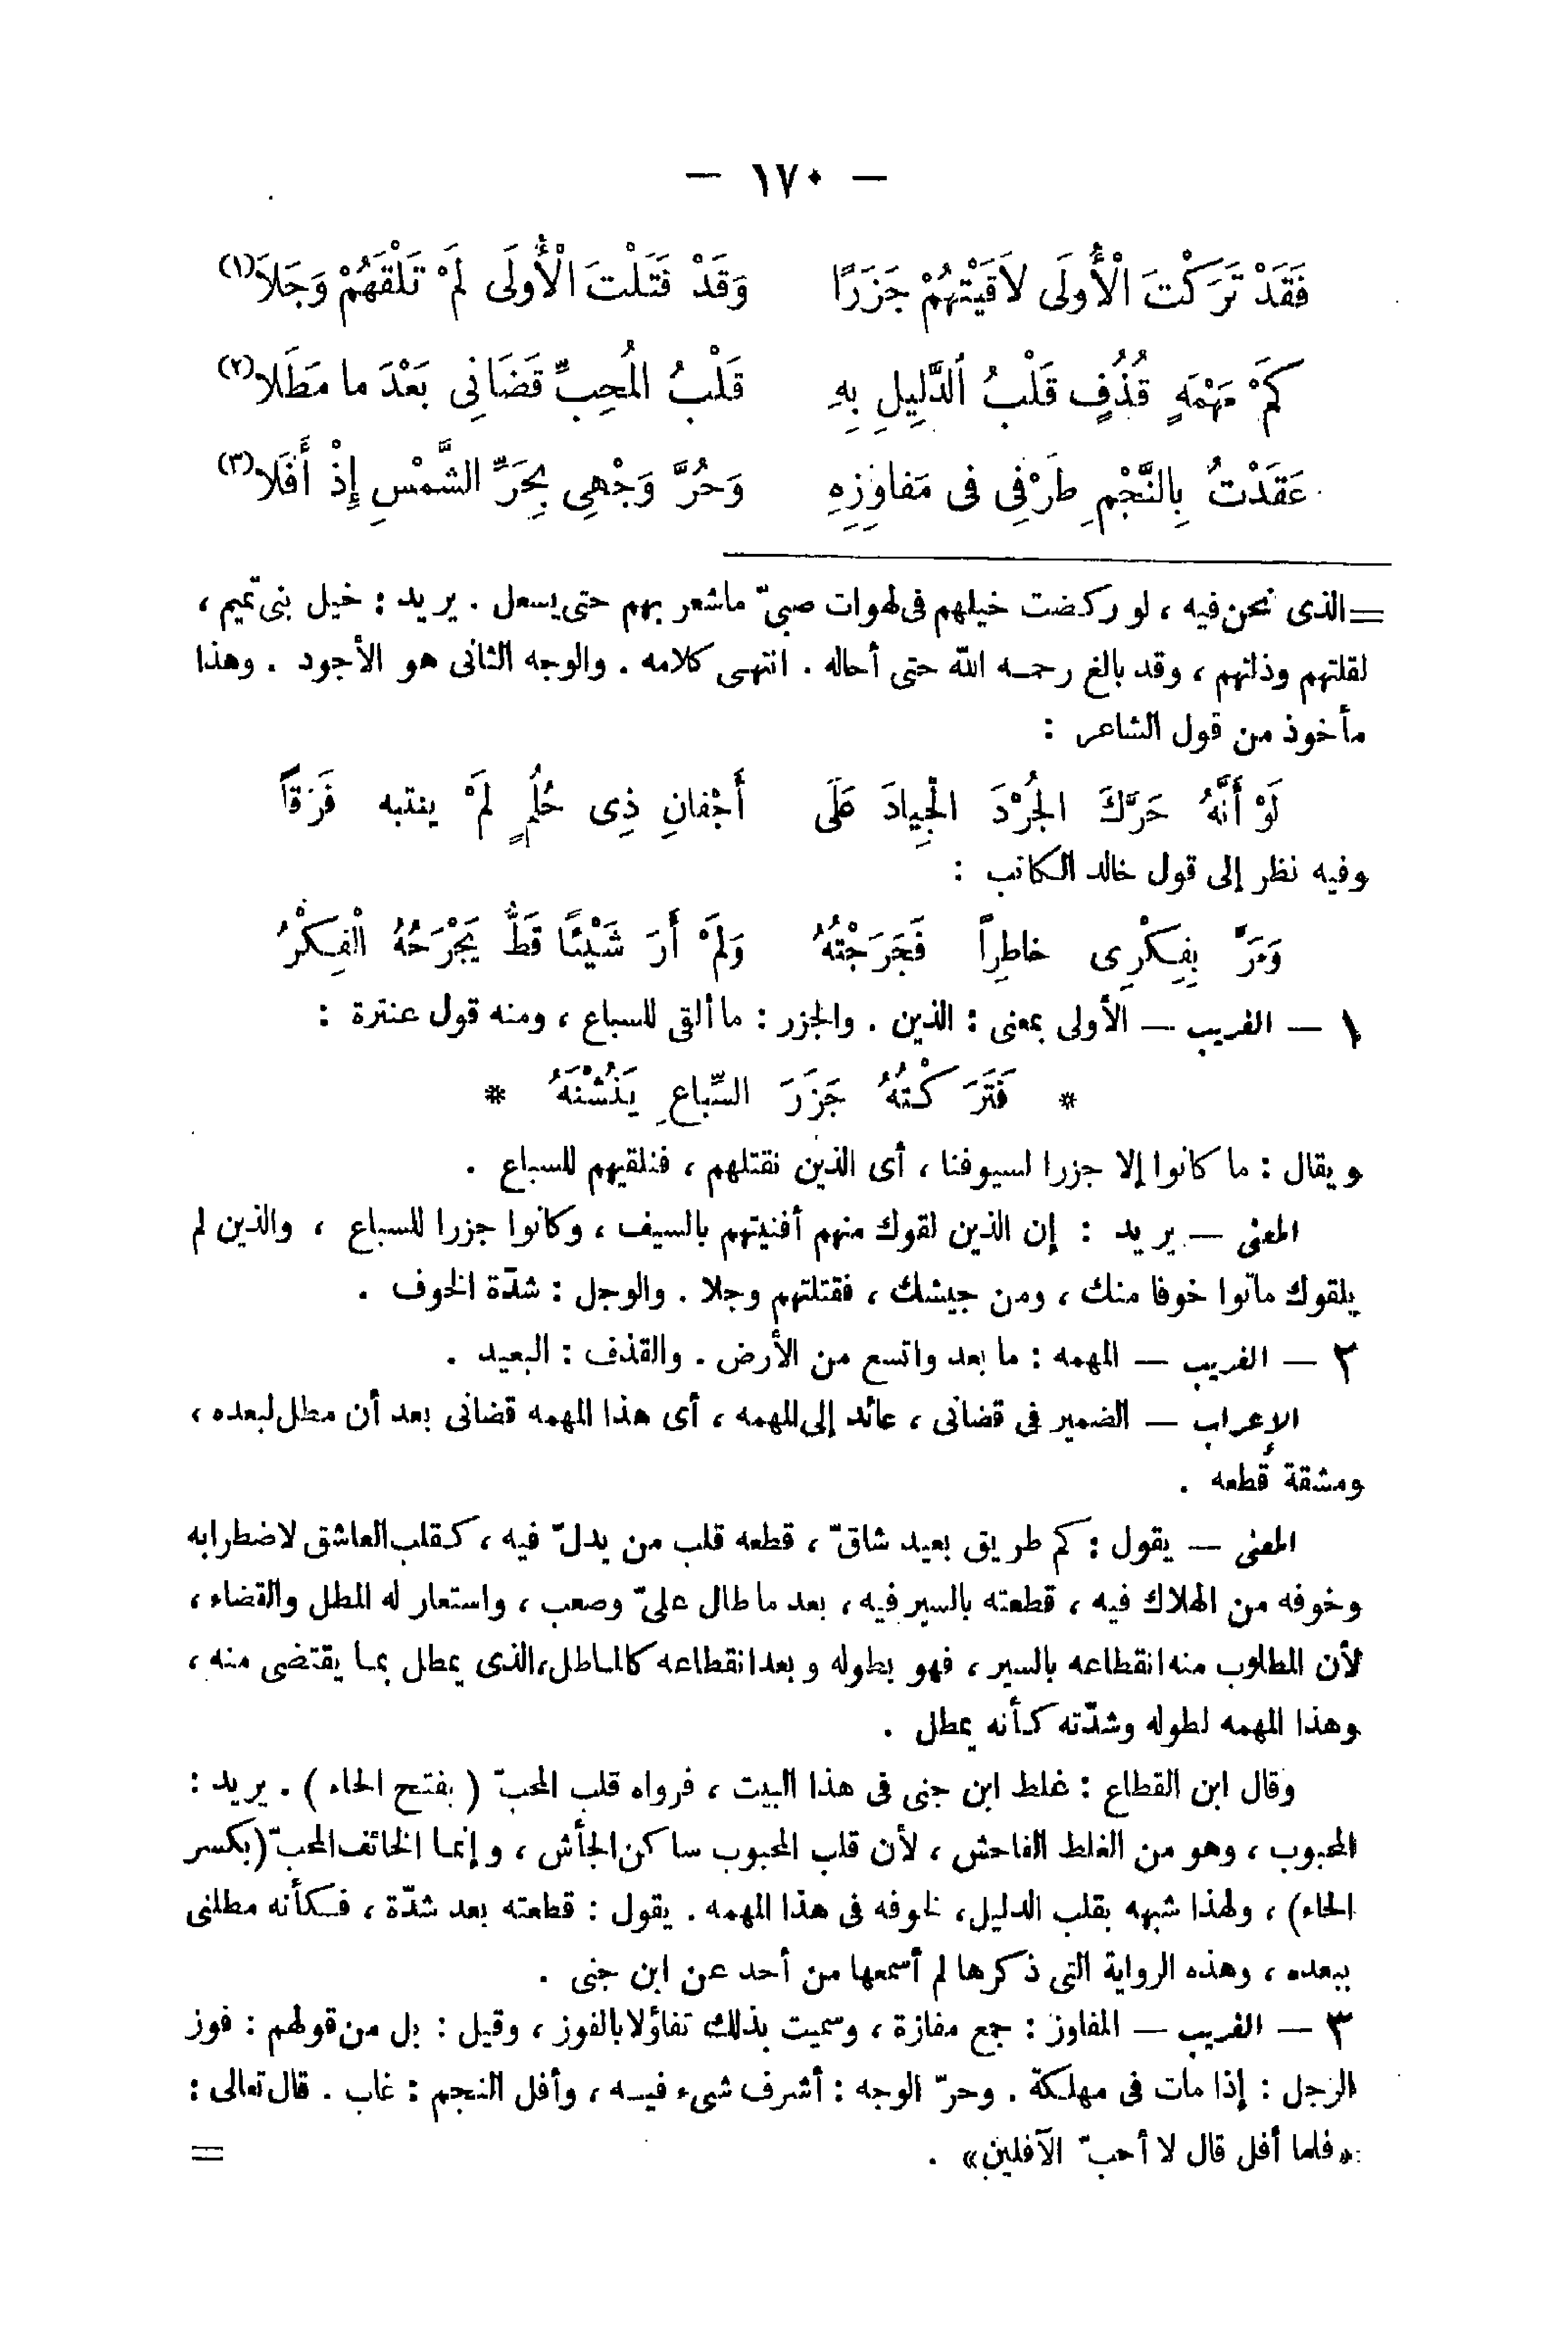 — ١٧٠ —
فَقَدْ تَرَكْتَ الْأُولَى لَاقَيْتَهُمْ جَزَرًا وَقَدْ قَتَلْتَ الْأُولَى لَمْ تَلْقَهُمْ وَجَلَا (١)
كَمْ مَهْمَهٍ قُذُفٍ قَلْبُ الدَّلِيلِ بِهِ قَلْبُ الْمُحِبِّ قَضَانِى بَعْدَ ما مَطَلَا (٢)
عَقَدْتُ بِالنَّجْمِ طَرْفِى فى مَفاوِزِهِ وَحُرَّ وَجْهِى بِحَرِّ الشَّمْسِ إِذْ أَفَلَا (٣)
= الذى نحن فيه ، لو ركضت خيلهم فى لهوات صبىّ ماشعر بهم حتى يسعل . يريد : خيل بنى تميم ،
لقلتهم وذلتهم ، وقد بالغ رحمه الله حتى أحاله . انتهى كلامه . والوجه الثانى هو الأجود . وهذا
مأخوذ من قول الشاعر :
لَوْ أَنَّهُ حَرَّكَ الْجُرْدَ الْجِيادَ عَلَى أَجْفانِ ذِى حُلُمٍ لَمْ ينتبه فَرَقاً
وفيه نظر إلى قول خالد الكاتب :
وَمَرَّ بِفِكْرِى خاطِراً فَجَرَحْتُهُ وَلَمْ أَرَ شَيْئًا قَطُّ يَجْرَحُهُ الْفِكْرُ
١ — الغريب — الأولى بمعنى : الذين . والجزر : ما ألقى للسباع ، ومنه قول عنترة :
* فَتَرَكْتُهُ جَزَرَ السِّباعِ يَنُشْنَهُ *
ويقال : ما كانوا إلا جزرا لسيوفنا ، أى الذين نقتلهم ، فنلقيهم للسباع .
المعنى — يريد : إن الذين لقوك منهم أفنيتهم بالسيف ، وكانوا جزرا للسباع ، والذين لم
يلقوك ماتوا خوفا منك ، ومن جيشك ، فقتلتهم وجلا . والوجل : شدّة الخوف .
٢ — الغريب — المهمه : ما بعد واتسع من الأرض . والقذف : البعيد .
الإعراب — الضمير فى قضانى ، عائد إلى المهمه ، أى هذا المهمه قضانى بعد أن مطل لبعده ،
ومشقة قطعه .
المعنى — يقول : كم طريق بعيد شاقّ ، قطعه قلب من يدلّ فيه ، كقلب العاشق لاضطرابه
وخوفه من الهلاك فيه ، قطعته بالسير فيه ، بعد ما طال علىّ وصعب ، واستعار له المطل والقضاء ،
لأن المطلوب منه انقطاعه بالسير ، فهو بطوله وبعد انقطاعه كالماطل ، الذى يمطل بما يقتضى منه ،
وهذا المهمه لطوله وشدّته كأنه يمطل .
وقال ابن القطاع : غلط ابن جنى فى هذا البيت ، فرواه قلب المحبّ ( بفتح الحاء ) . يريد :
المحبوب ، وهو من الغلط الفاحش ، لأن قلب المحبوب ساكن الجأش ، وإنما الخائف المحبّ (بكسر
الحاء) ، ولهذا شبهه بقلب الدليل ، لخوفه فى هذا المهمه . يقول : قطعته بعد شدّة ، فكأنه مطلنى
ببعده ، وهذه الرواية التى ذكرها لم أسمعها من أحد عن ابن جنى .
٣ — الغريب — المفاوز : جمع مفازة ، وسميت بذلك تفاؤلا بالفوز ، وقيل : بل من قولهم : فوز
الرجل : إذا مات فى مهلكة . وحرّ الوجه : أشرف شىء فيه ، وأفل النجم : غاب . قال تعالى :
«فلما أفل قال لا أحبّ الآفلين» . =